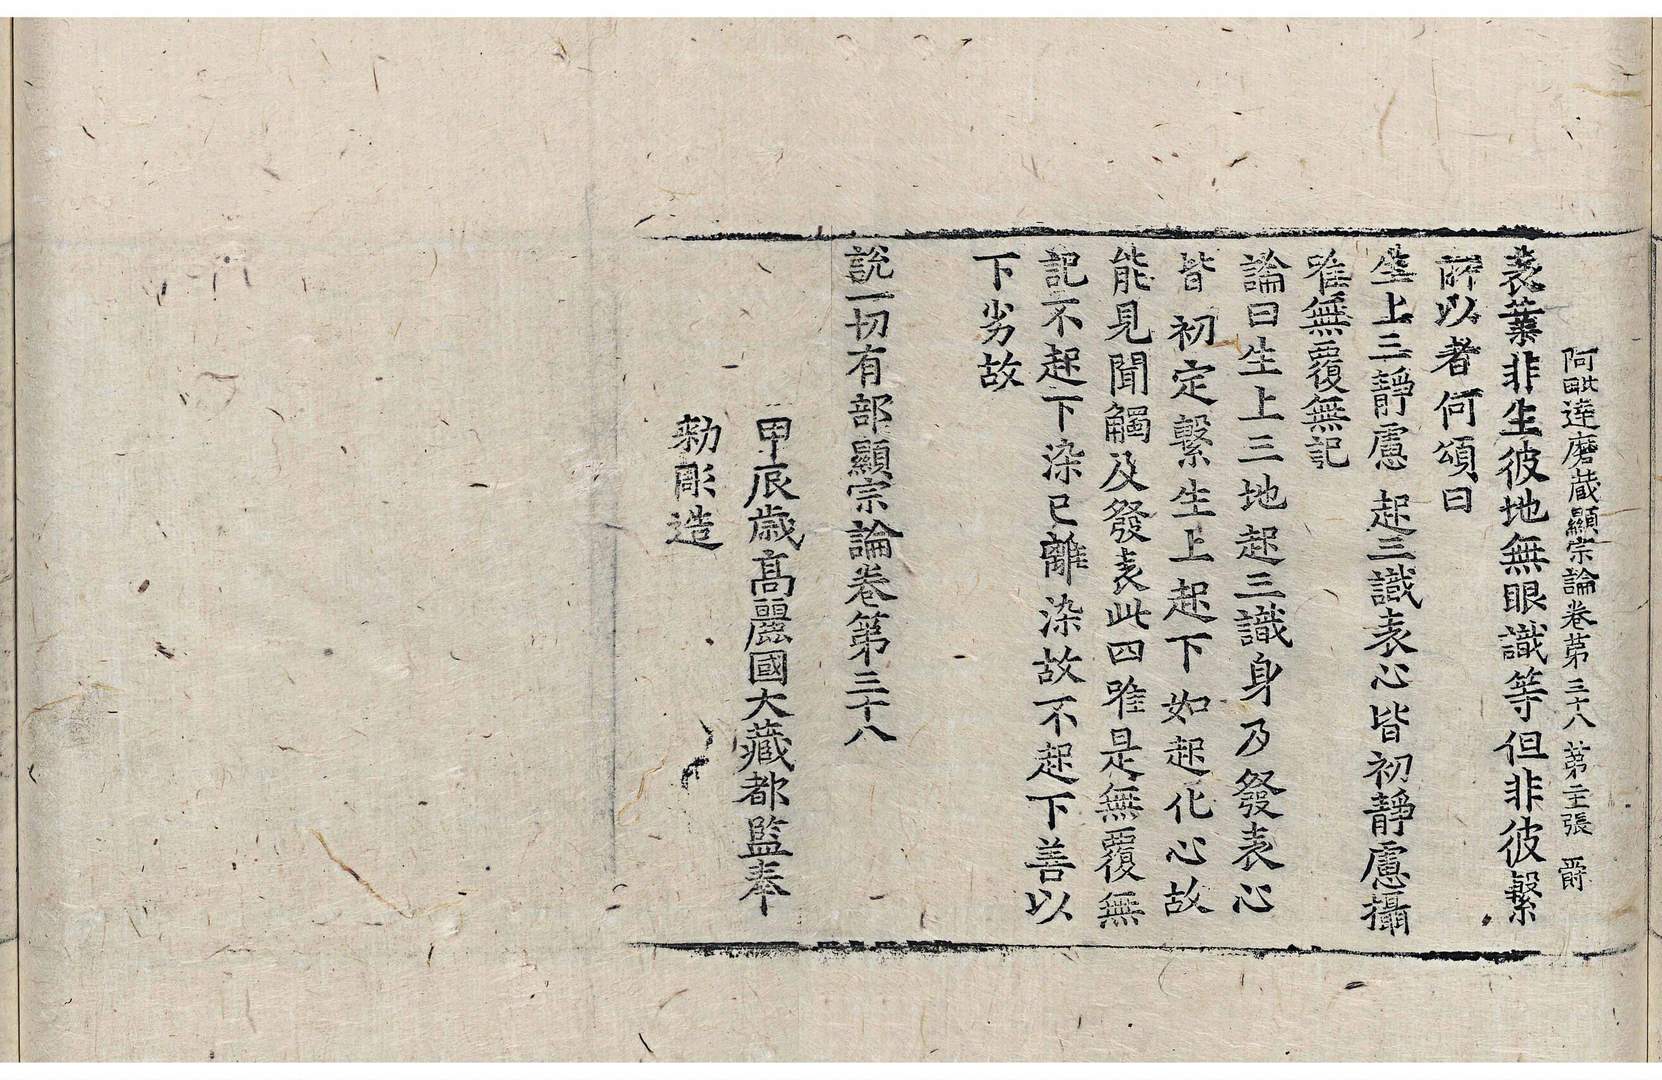 阿毗達磨蔵顯宗論卷第三十八 第主張 爵
表業非生彼地無眼識等但非彼繫
所以者何頌曰
生上三靜慮 起三識表心皆初靜慮攝
唯無覆無記
論曰生上三地起三識身乃發表心
皆初定繫生上起下如起化心故
能見聞觸及發表此四唯是無覆無
記不起下染已離染故不起下善以
下劣故
說一切有部顯宗論卷第三十八
甲辰歲高麗國大藏都監奉
勅彫造